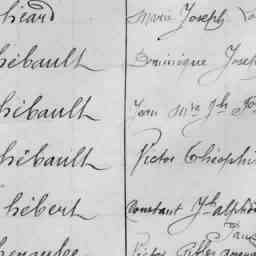 héard Marie Joseph
hébault Dominique Josep
hébault Jean Mie Jh
hébault Victor Théophi
hébert Constant Jh alphon
Victor